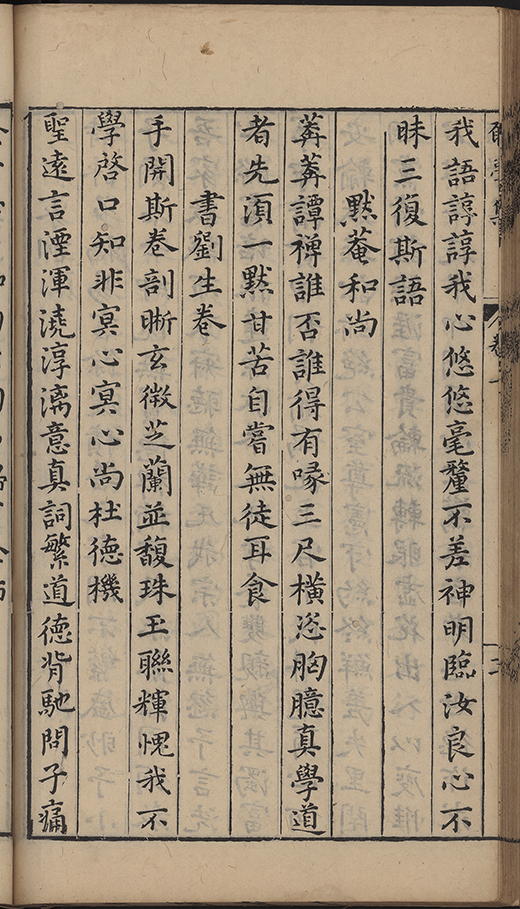 我語諄諄我心悠悠毫釐不差神明臨汝良心不
昧三復斯語
默菴和尚
莾莾譚禅誰否誰得有喙三尺橫恣胸臆真學道
者先湏一默甘苦自嘗無徒耳食
書劉生卷
手開斯卷剖晣玄微芝蘭並馥珠玉聯輝愧我不
學啓口知非冥心冥心尚杜德機
聖遠言湮渾澆淳漓意真詞繁道德背馳問子痛